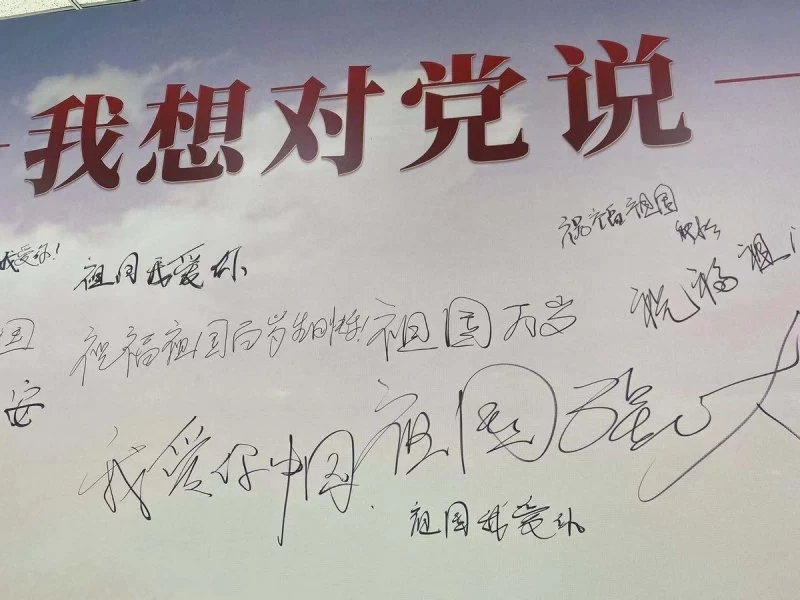 我想对党说
祝福祖国
我爱你！
祖国我爱你
祝福祖
国
祝福祖国 岁生日快乐！
祖国万岁
安
我爱你中国
祖国强大
祖国我爱你